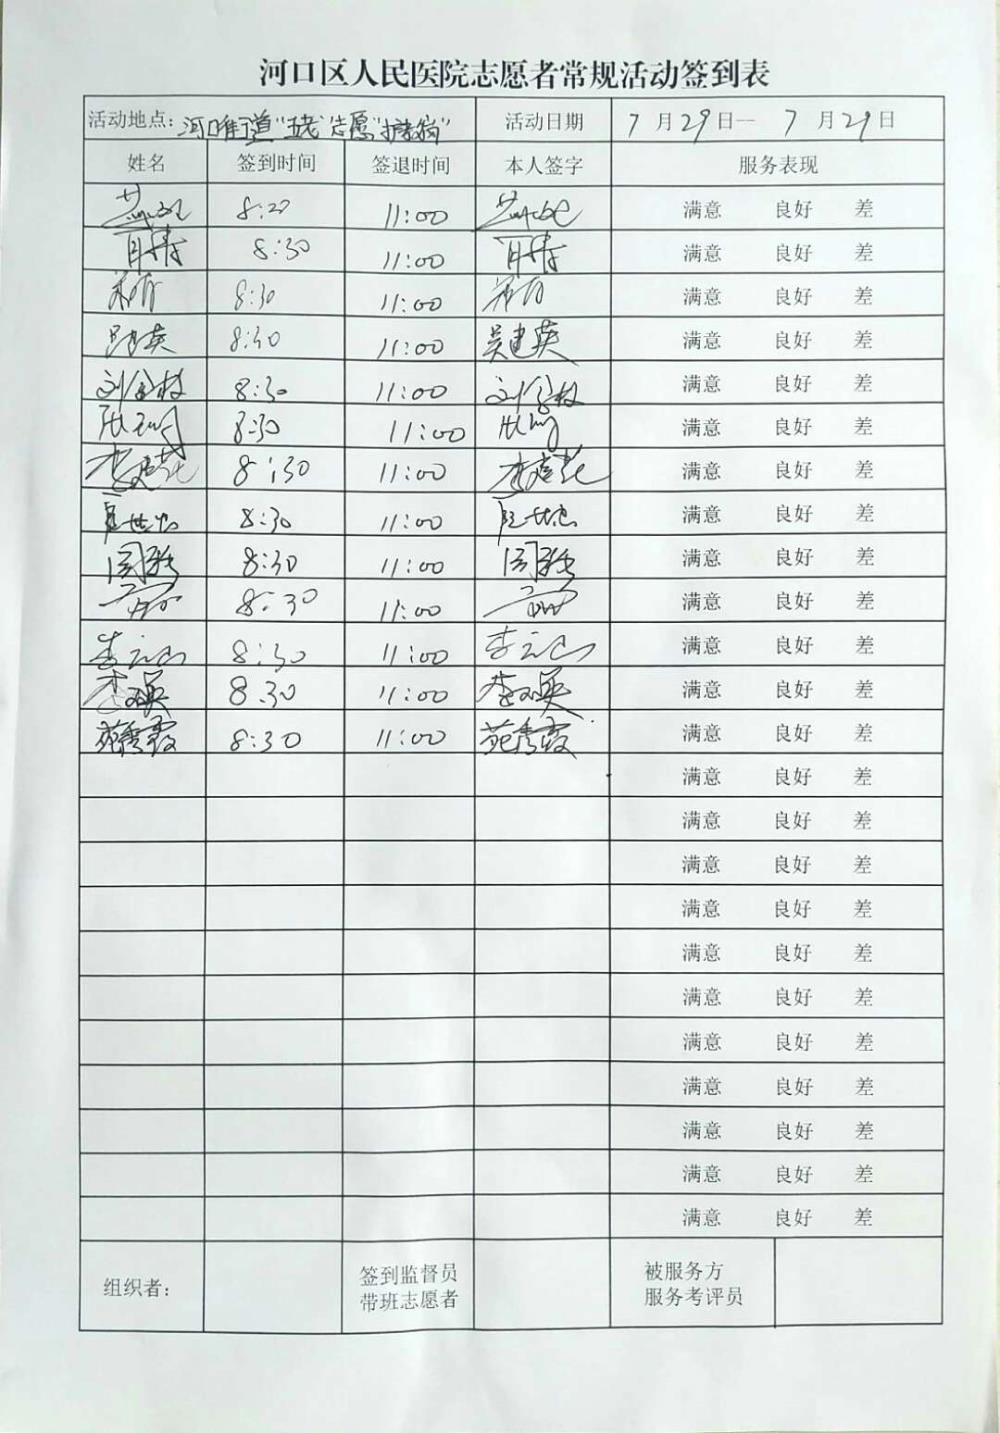 河口区人民医院志愿者常规活动签到表
活动地点： 河口街道"五老"志愿" 活动日期 7 月 29 日— 7 月 29 日
姓名 签到时间 签退时间 本人签字 服务表现
8:20 11:00 满意 良好 差
8:30 11:00 满意 良好 差
8:30 11:00 满意 良好 差
吴建英 8:30 11:00 吴建英 满意 良好 差
刘金枝 8:30 11:00 刘金枝 满意 良好 差
8:30 11:00 满意 良好 差
李建花 8:30 11:00 李建花 满意 良好 差
8:30 11:00 满意 良好 差
8:30 11:00 满意 良好 差
8:30 11:00 满意 良好 差
李云山 8:30 11:00 李云山 满意 良好 差
8:30 11:00 满意 良好 差
苑秀霞 8:30 11:00 苑秀霞 满意 良好 差
满意 良好 差
满意 良好 差
满意 良好 差
满意 良好 差
满意 良好 差
满意 良好 差
满意 良好 差
满意 良好 差
满意 良好 差
满意 良好 差
满意 良好 差
组织者： 签到监督员 被服务方
带班志愿者 服务考评员